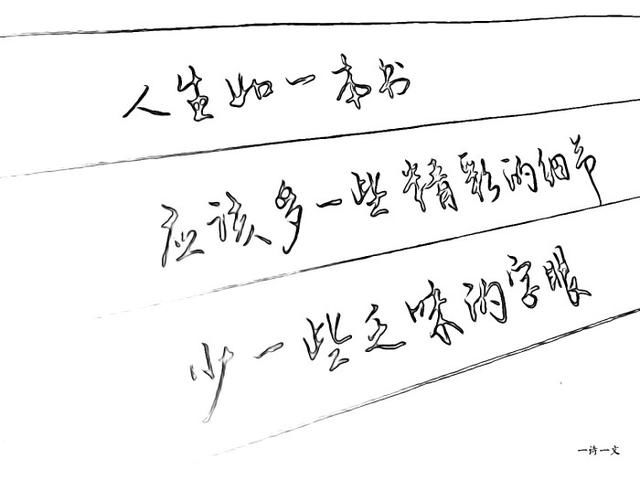 人生如一本书
应该多一些精彩的细节
少一些乏味的字眼
一诗一文